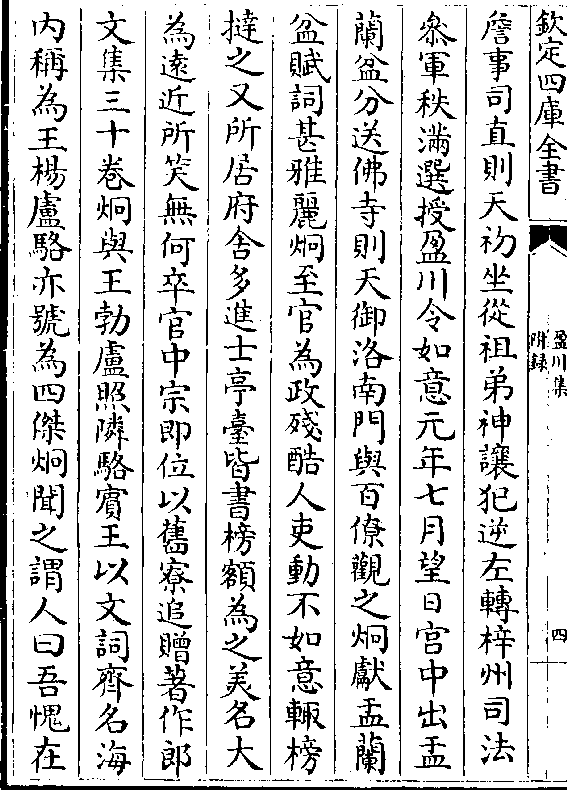 欽定四庫全書
盈川集
附録
四
詹事司直則天初坐從祖弟神讓犯逆左轉梓州司法
叅軍秩滿選授盈川令如意元年七月望日宫中出盂
蘭盆分送佛寺則天御洛南門與百僚觀之炯獻盂蘭
盆賦詞甚雅麗炯至官為政殘酷人吏動不如意輙榜
撻之又所居府舍多進士亭臺皆書榜額為之美名大
為逺近所笑無何卒官中宗即位以舊寮追贈著作郎
文集三十卷炯與王勃盧照隣駱賓王以文詞齊名海
内稱為王楊盧駱亦號為四傑炯聞之謂人曰吾愧在